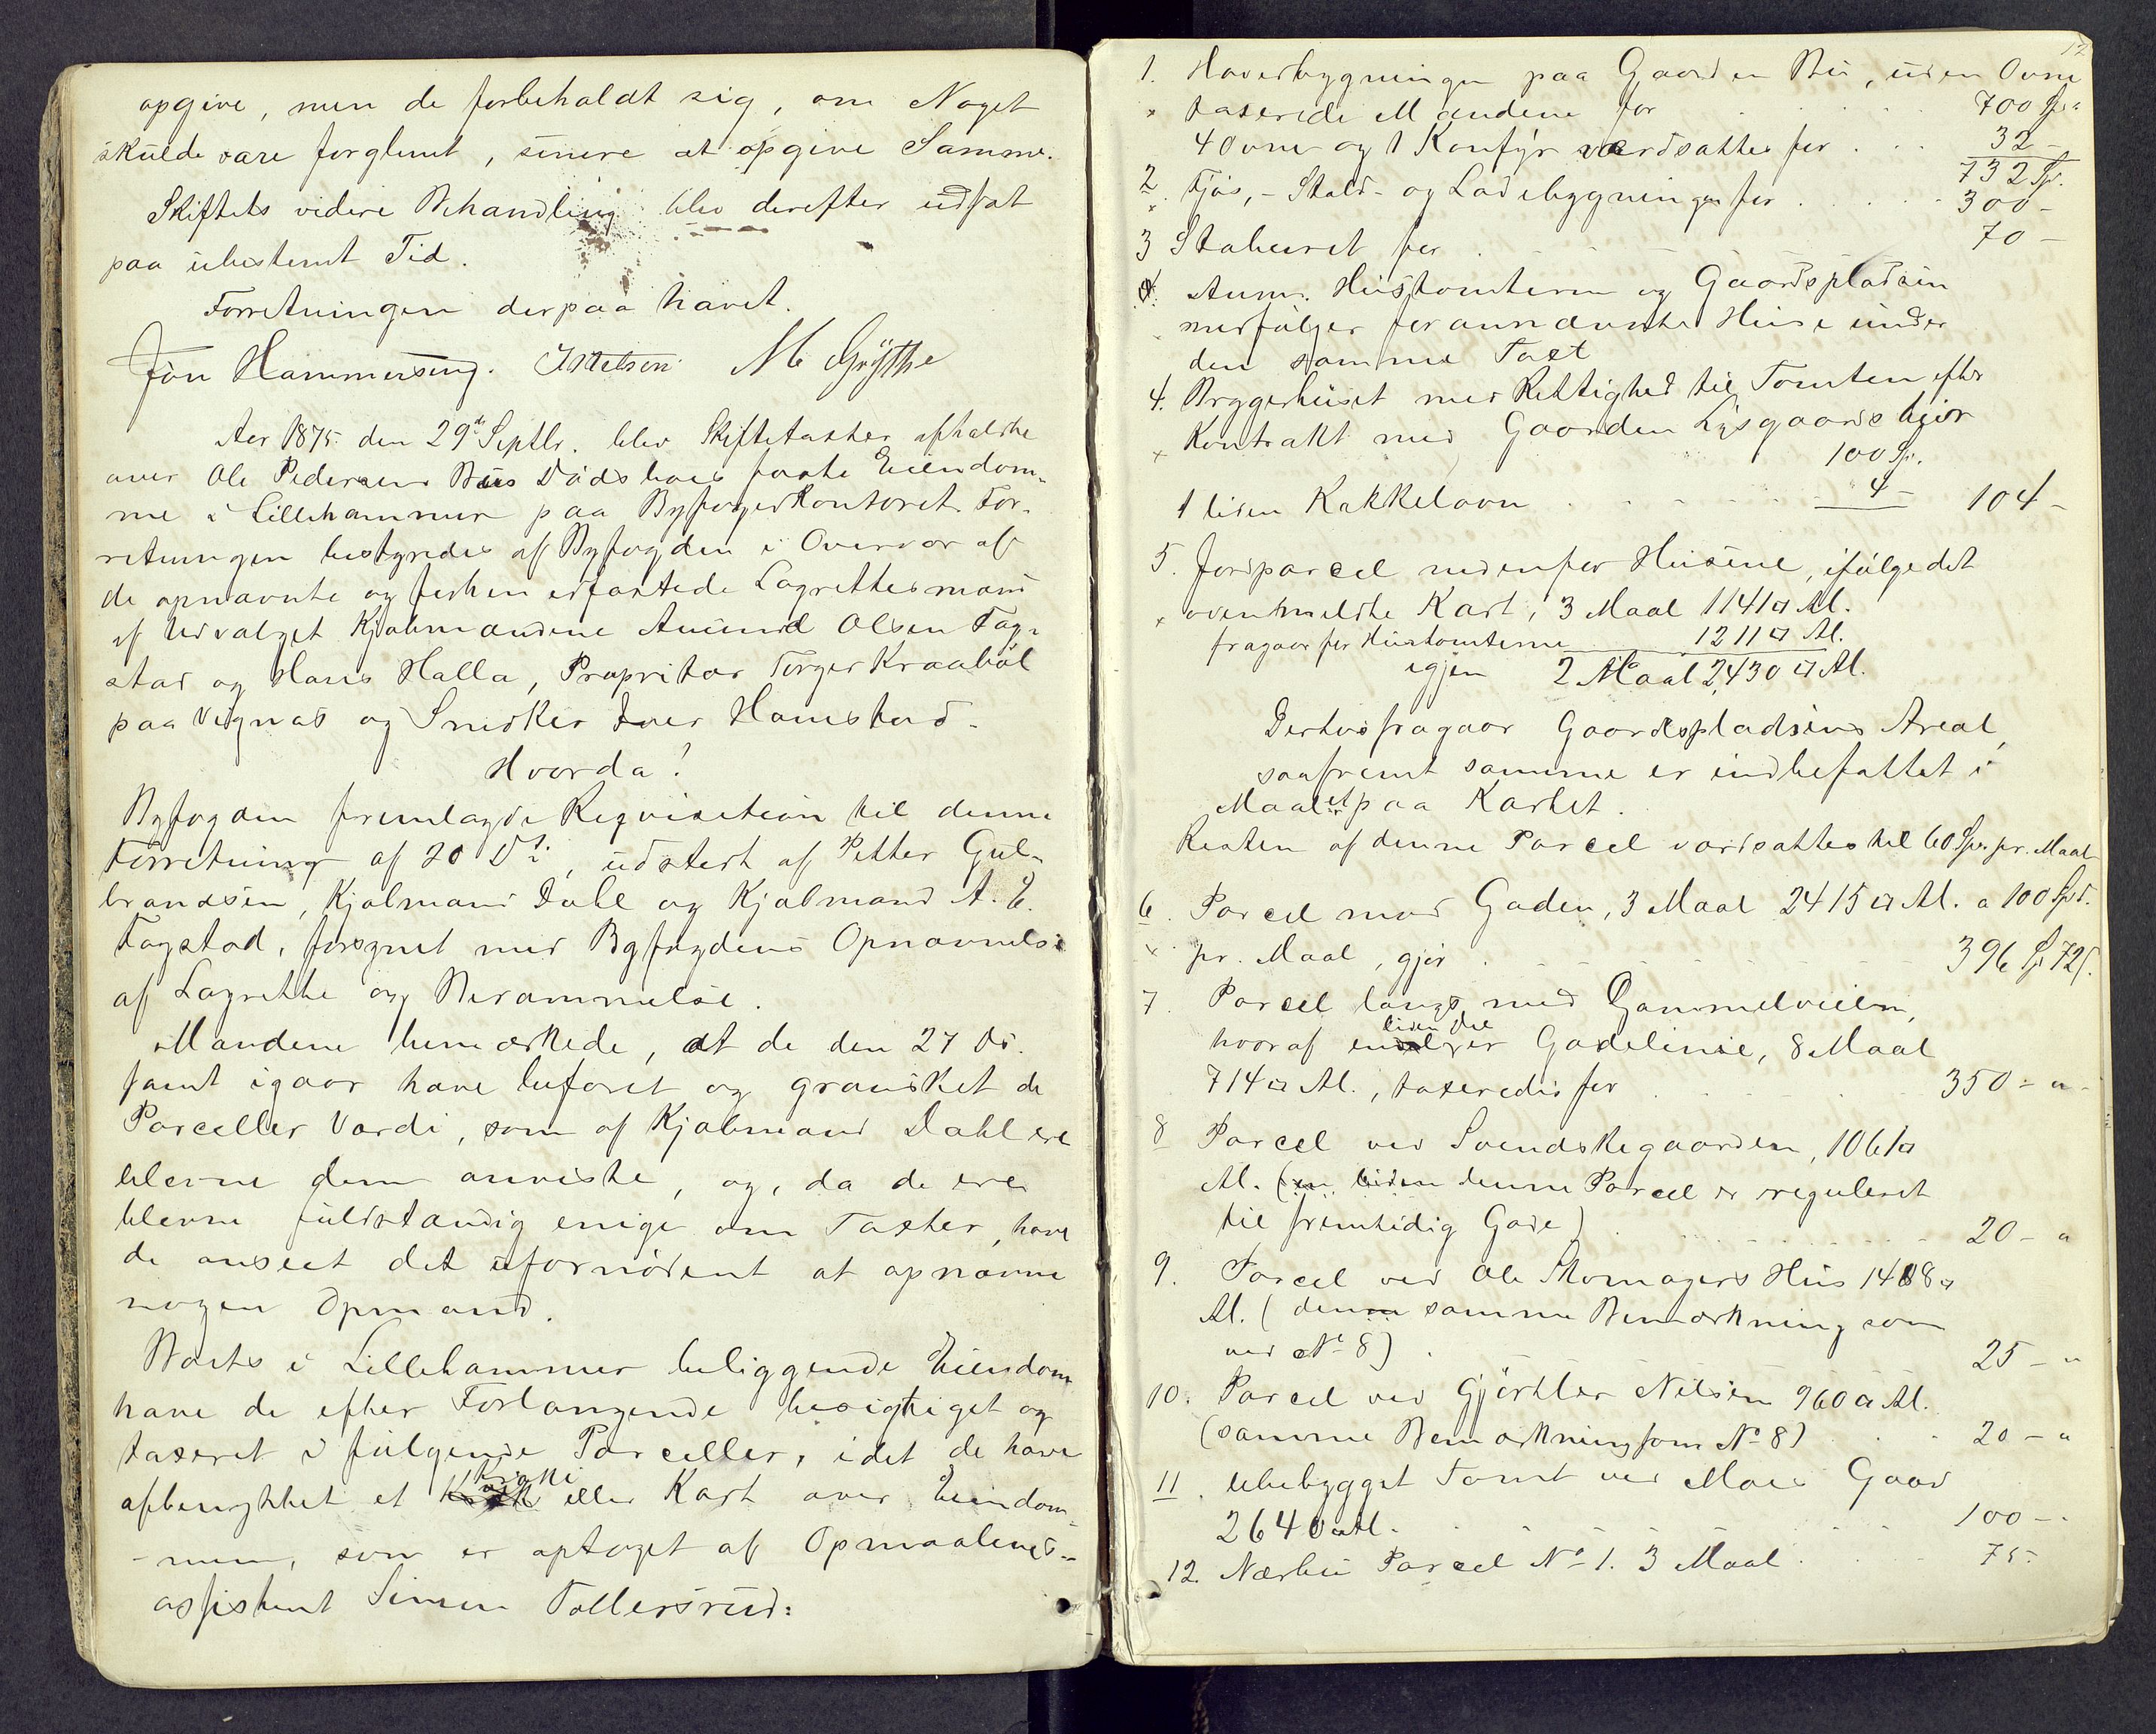 opgive, men de forbeholdt sig, om Noget
skulde være forglemt, senere at opgive Samme.
Skiftets videre Behandling blev derefter udsat
paa ubestemt Tid.
Forretningen derpaa hævet.
Jon Hammerseng.
Aar 1875 den 29de Septbr. blev Skiftetaxter afholdte
over Ole Pedersen Bues Dødsboes faste Eiendom-
me i Lillehammer paa Byfogedkontoret. For-
retningen bestyredes af Byfogden i Overvær af
de opnævnte og forhen edfæstede Lagrettesmænd
af Udvalget Kjøbmændene Amund Olsen Fag-
stad og Hans Halla, Propritær Torger Kraabøl
paa Vignæs og Snedker Iver Hamstad.
Hvorda!
Byfogden fremlagde Reqvisition til denne
Forretning af 20 Ds., udstedt af Petter Gul-
brandsen, Kjøbmand Dahl og Kjøbmand A. E.
Fagstad, forsynet med Byfogdens Opnævnelse
af Lagrette og Berammelse.
Mændene bemærkede, at de den 27 ds.
samt igaar have befaret og gransket de
Parceller Værdi, som af Kjøbmand Dahl ere
blevne dem anviste, og, da de ere
blevne fuldstændig enige om Taxter, have
de anseet det ufornødent at opnævne
nogen Opmand.
Boets i Lillehammer beliggende Eiendom
have de efter Forlangende besigtiget og
taxeret i følgende Parceller, idet de have
afbenyttet et Kroki eller Kart over Eiendom-
-men, som er optaget af Opmaalings-
assistent Simen Tollersrud:
12
1. Hovedbygningen paa Gaarden Bu, uden Ovne
x taxerede Mændene for . . . 700 Spd
4 Ovne og 1 Komfyr værdsattes for . . . 32 -
732 Sp.
2. Fjøs,- Stald- og Ladebygningen for . . . 300 -
3 Staburet for . . . 70 -
Anm. Hustomterne og Gaardspladsen
medfølger forannævnte Huse under
den samme Taxt
4. Bryggerhuset med Rettighed til Tomten efter
x Kontrakt med Gaarden Lysgaards Eier
100 Sp.
1 liden Kakkelovn . . . 4 - 104 -
5. Jordparcel nedenfor Husene, ifølge det
x ovenmeldte Kart, 3 Maal 1141 □ Al.
fragaar for Hustomterne 1211 □ Al.
igjen 2 Maal 2,430 □ Al.
Derhos fragaar Gaardspladsens Areal,
saafremt samme er indbefattet i
Maalet paa Kartet.
Resten af denne Parcel værdsattes til 60 Spd. pr. Maal
6. Parcel mod Gaden, 3 Maal 2415 □ Al. a 100 Spd.
x pr. Maal, gjør . . . 396 Sp 72 s.
7. Parcel langs med Gammelveien,
hvoraf en liden Del er Gadelinie, 8 Maal
714 □ Al., taxeredes for . . . 350 - "
8 Parcel ved Svendskegaarden, 1061 □
Al. (en liden denne Parcel er reguleret
til fremtidig Gade) . . . 20 - "
9. Parcel ved Ole Skomagers Hus 1488 □
Al. (denne samme Bemærkning som
ved No 8) . . . 25 - "
10. Parcel ved Gjørtler Nilsen 960 □ Al.
(samme Bemærkning som No 8) . . . 20 - "
11 Ubebygget Tomt ved Moes Gaard
2640 □ Al. . . . 100 -
12. Nærbu Parcel No 1. 3 Maal . . . 75 -